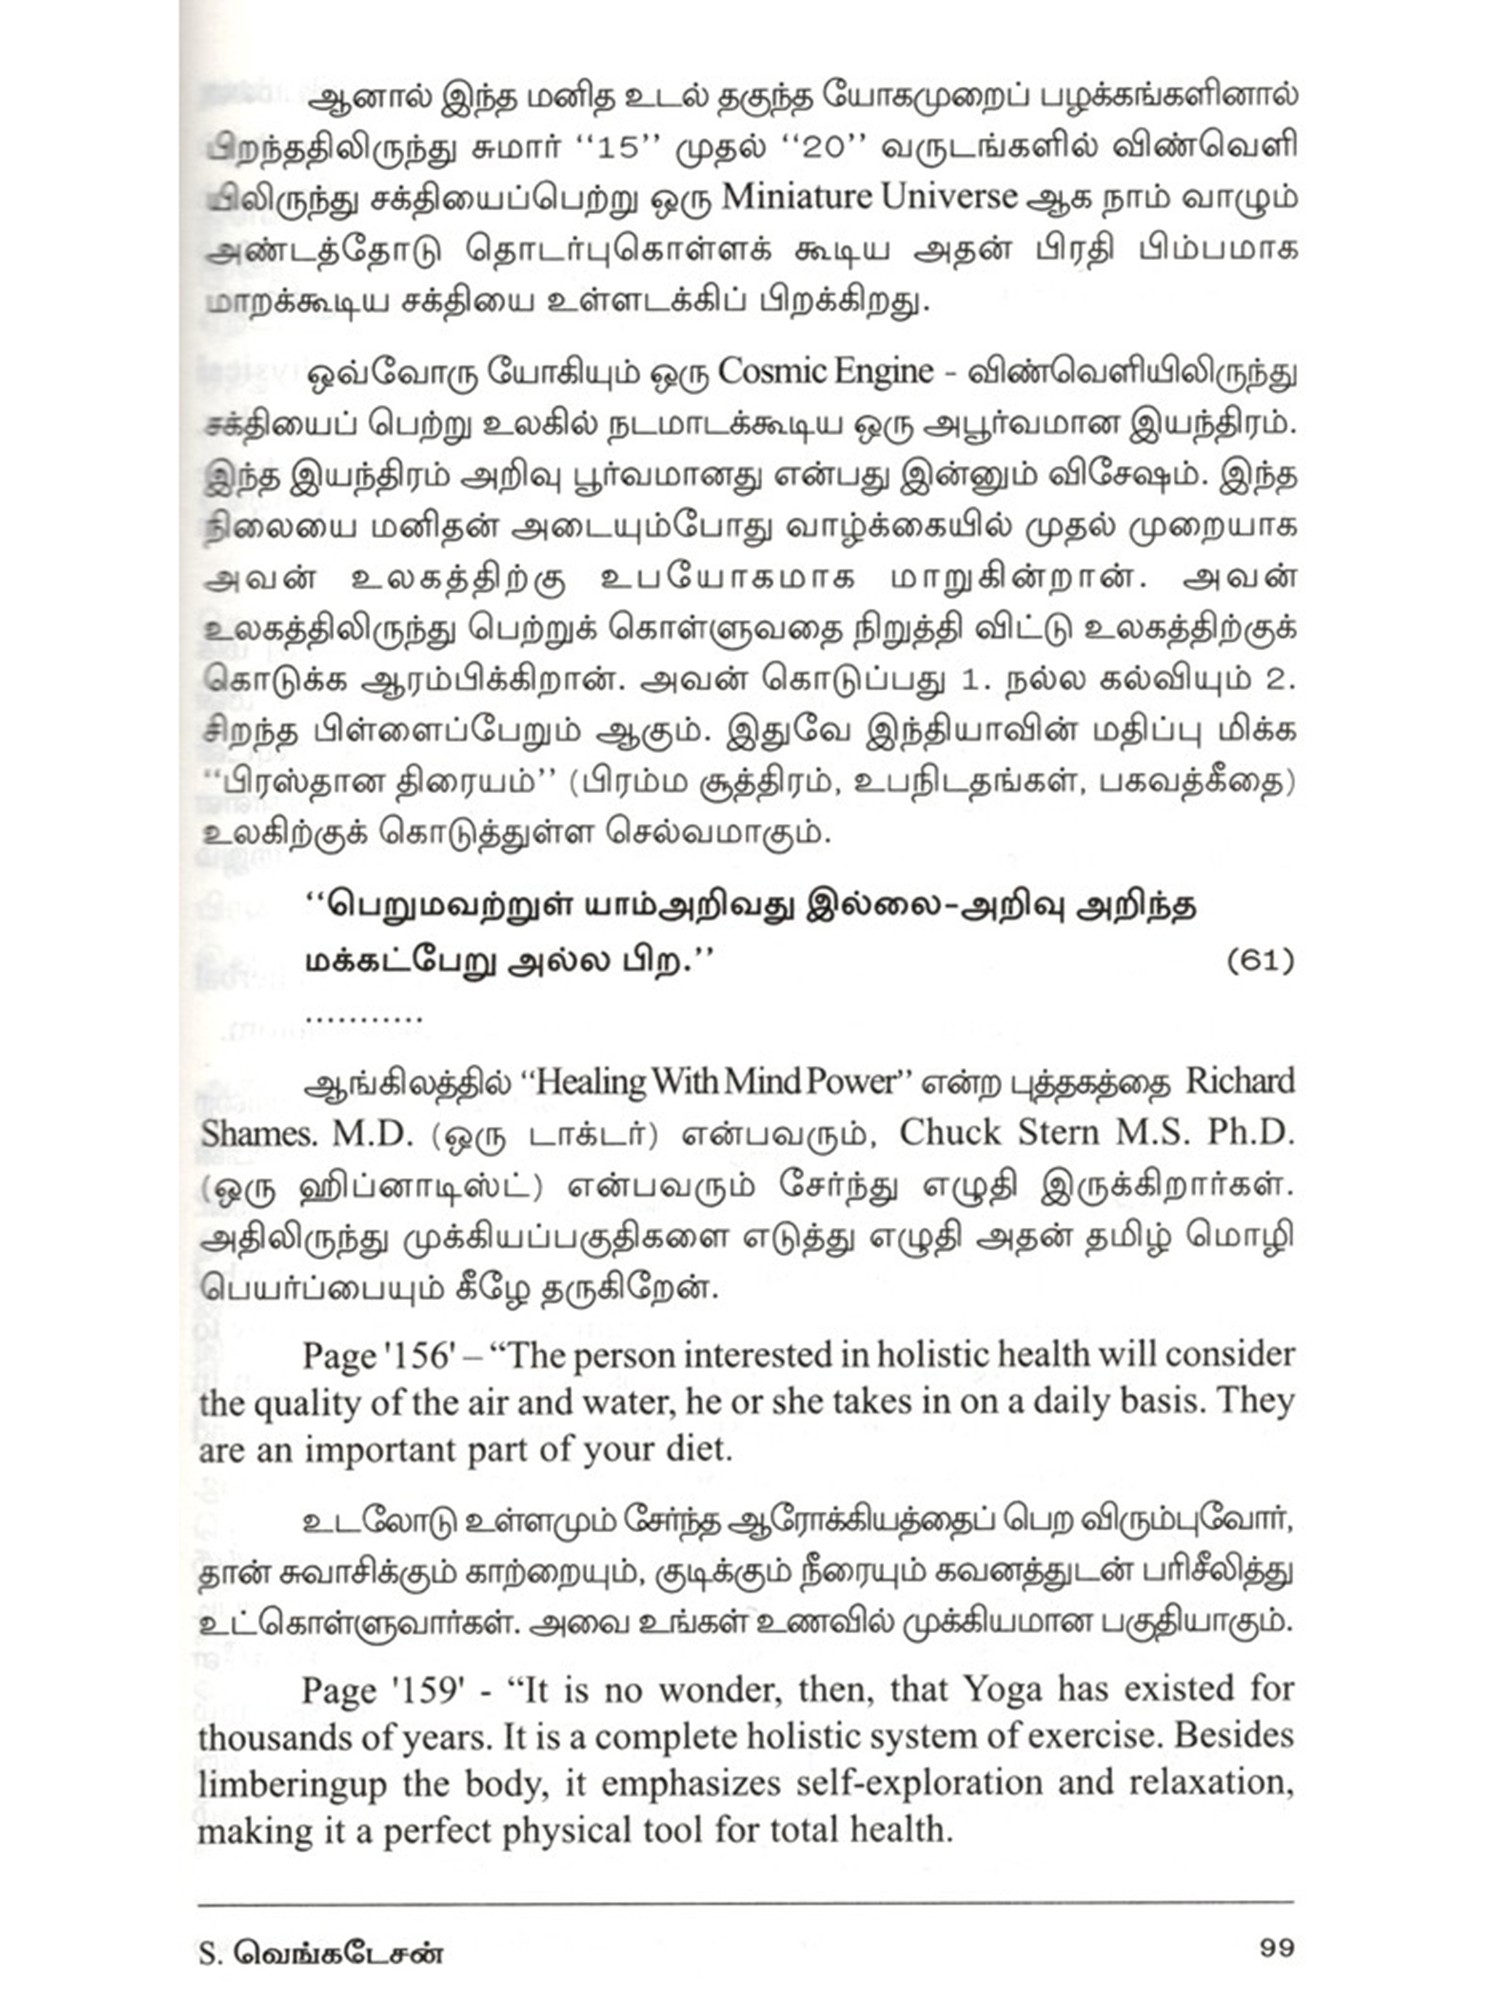 ஆனால் இந்த மனித உடல் தகுந்த யோகமுறைப் பழக்கங்களினால்
பிறந்ததிலிருந்து சுமார் “15” முதல் “20” வருடங்களில் விண்வெளி
யிலிருந்து சக்தியைப்பெற்று ஒரு Miniature Universe ஆக நாம் வாழும்
அண்டத்தோடு தொடர்புகொள்ளக் கூடிய அதன் பிரதி பிம்பமாக
மாறக்கூடிய சக்தியை உள்ளடக்கிப் பிறக்கிறது.
ஒவ்வோரு யோகியும் ஒரு Cosmic Engine - விண்வெளியிலிருந்து
சக்தியைப் பெற்று உலகில் நடமாடக்கூடிய ஒரு அபூர்வமான இயந்திரம்.
இந்த இயந்திரம் அறிவு பூர்வமானது என்பது இன்னும் விசேஷம். இந்த
நிலையை மனிதன் அடையும்போது வாழ்க்கையில் முதல் முறையாக
அவன் உலகத்திற்கு உபயோகமாக மாறுகின்றான். அவன்
உலகத்திலிருந்து பெற்றுக் கொள்ளுவதை நிறுத்தி விட்டு உலகத்திற்குக்
கொடுக்க ஆரம்பிக்கிறான். அவன் கொடுப்பது 1. நல்ல கல்வியும் 2.
சிறந்த பிள்ளைப்பேறும் ஆகும். இதுவே இந்தியாவின் மதிப்பு மிக்க
“பிரஸ்தான திரையம்” (பிரம்ம சூத்திரம், உபநிடதங்கள், பகவத்கீதை)
உலகிற்குக் கொடுத்துள்ள செல்வமாகும்.
“பெறுமவற்றுள் யாம்அறிவது இல்லை-அறிவு அறிந்த
மக்கட்பேறு அல்ல பிற.” (61)
...........
ஆங்கிலத்தில் “Healing With Mind Power” என்ற புத்தகத்தை Richard
Shames. M.D. (ஒரு டாக்டர்) என்பவரும், Chuck Stern M.S. Ph.D.
(ஒரு ஹிப்னாடிஸ்ட்) என்பவரும் சேர்ந்து எழுதி இருக்கிறார்கள்.
அதிலிருந்து முக்கியப்பகுதிகளை எடுத்து எழுதி அதன் தமிழ் மொழி
பெயர்ப்பையும் கீழே தருகிறேன்.
Page '156' – “The person interested in holistic health will consider
the quality of the air and water, he or she takes in on a daily basis. They
are an important part of your diet.
உடலோடு உள்ளமும் சேர்ந்த ஆரோக்கியத்தைப் பெற விரும்புவோர்,
தான் சுவாசிக்கும் காற்றையும், குடிக்கும் நீரையும் கவனத்துடன் பரிசீலித்து
உட்கொள்ளுவார்கள். அவை உங்கள் உணவில் முக்கியமான பகுதியாகும்.
Page '159' - “It is no wonder, then, that Yoga has existed for
thousands of years. It is a complete holistic system of exercise. Besides
limberingup the body, it emphasizes self-exploration and relaxation,
making it a perfect physical tool for total health.
S. வெங்கடேசன் 99